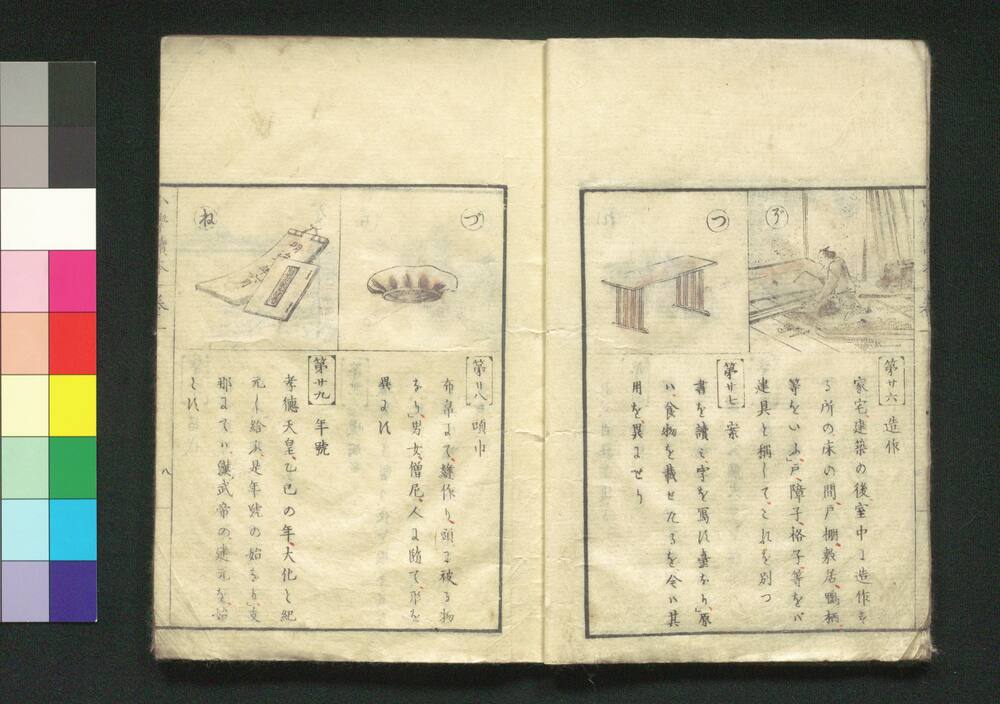 ざ
第廿六 造作
家宅建築の後、室中に造作す
る所の床の間、戸棚、敷居、鴨柄
等をいふ」戸、障子、格子、等をバ
建具と稱して、これを別つ
つ
第廿七 案
書を讀ミ、字を寫す臺なり」原
ハ、食物を載せたるを、今ハ其
用を異にせり
づ
第廿八 頭巾
布帛にて、縫作り、頭に被る物
なり」男女、僧尼、人に隨て、形を
異にす
ね
第廿九 年號
孝德天皇、乙巳の年、大化と紀
元し給ふ、是年號の始なり」支
那にてハ、漢武帝の、建元を、始
とす
八